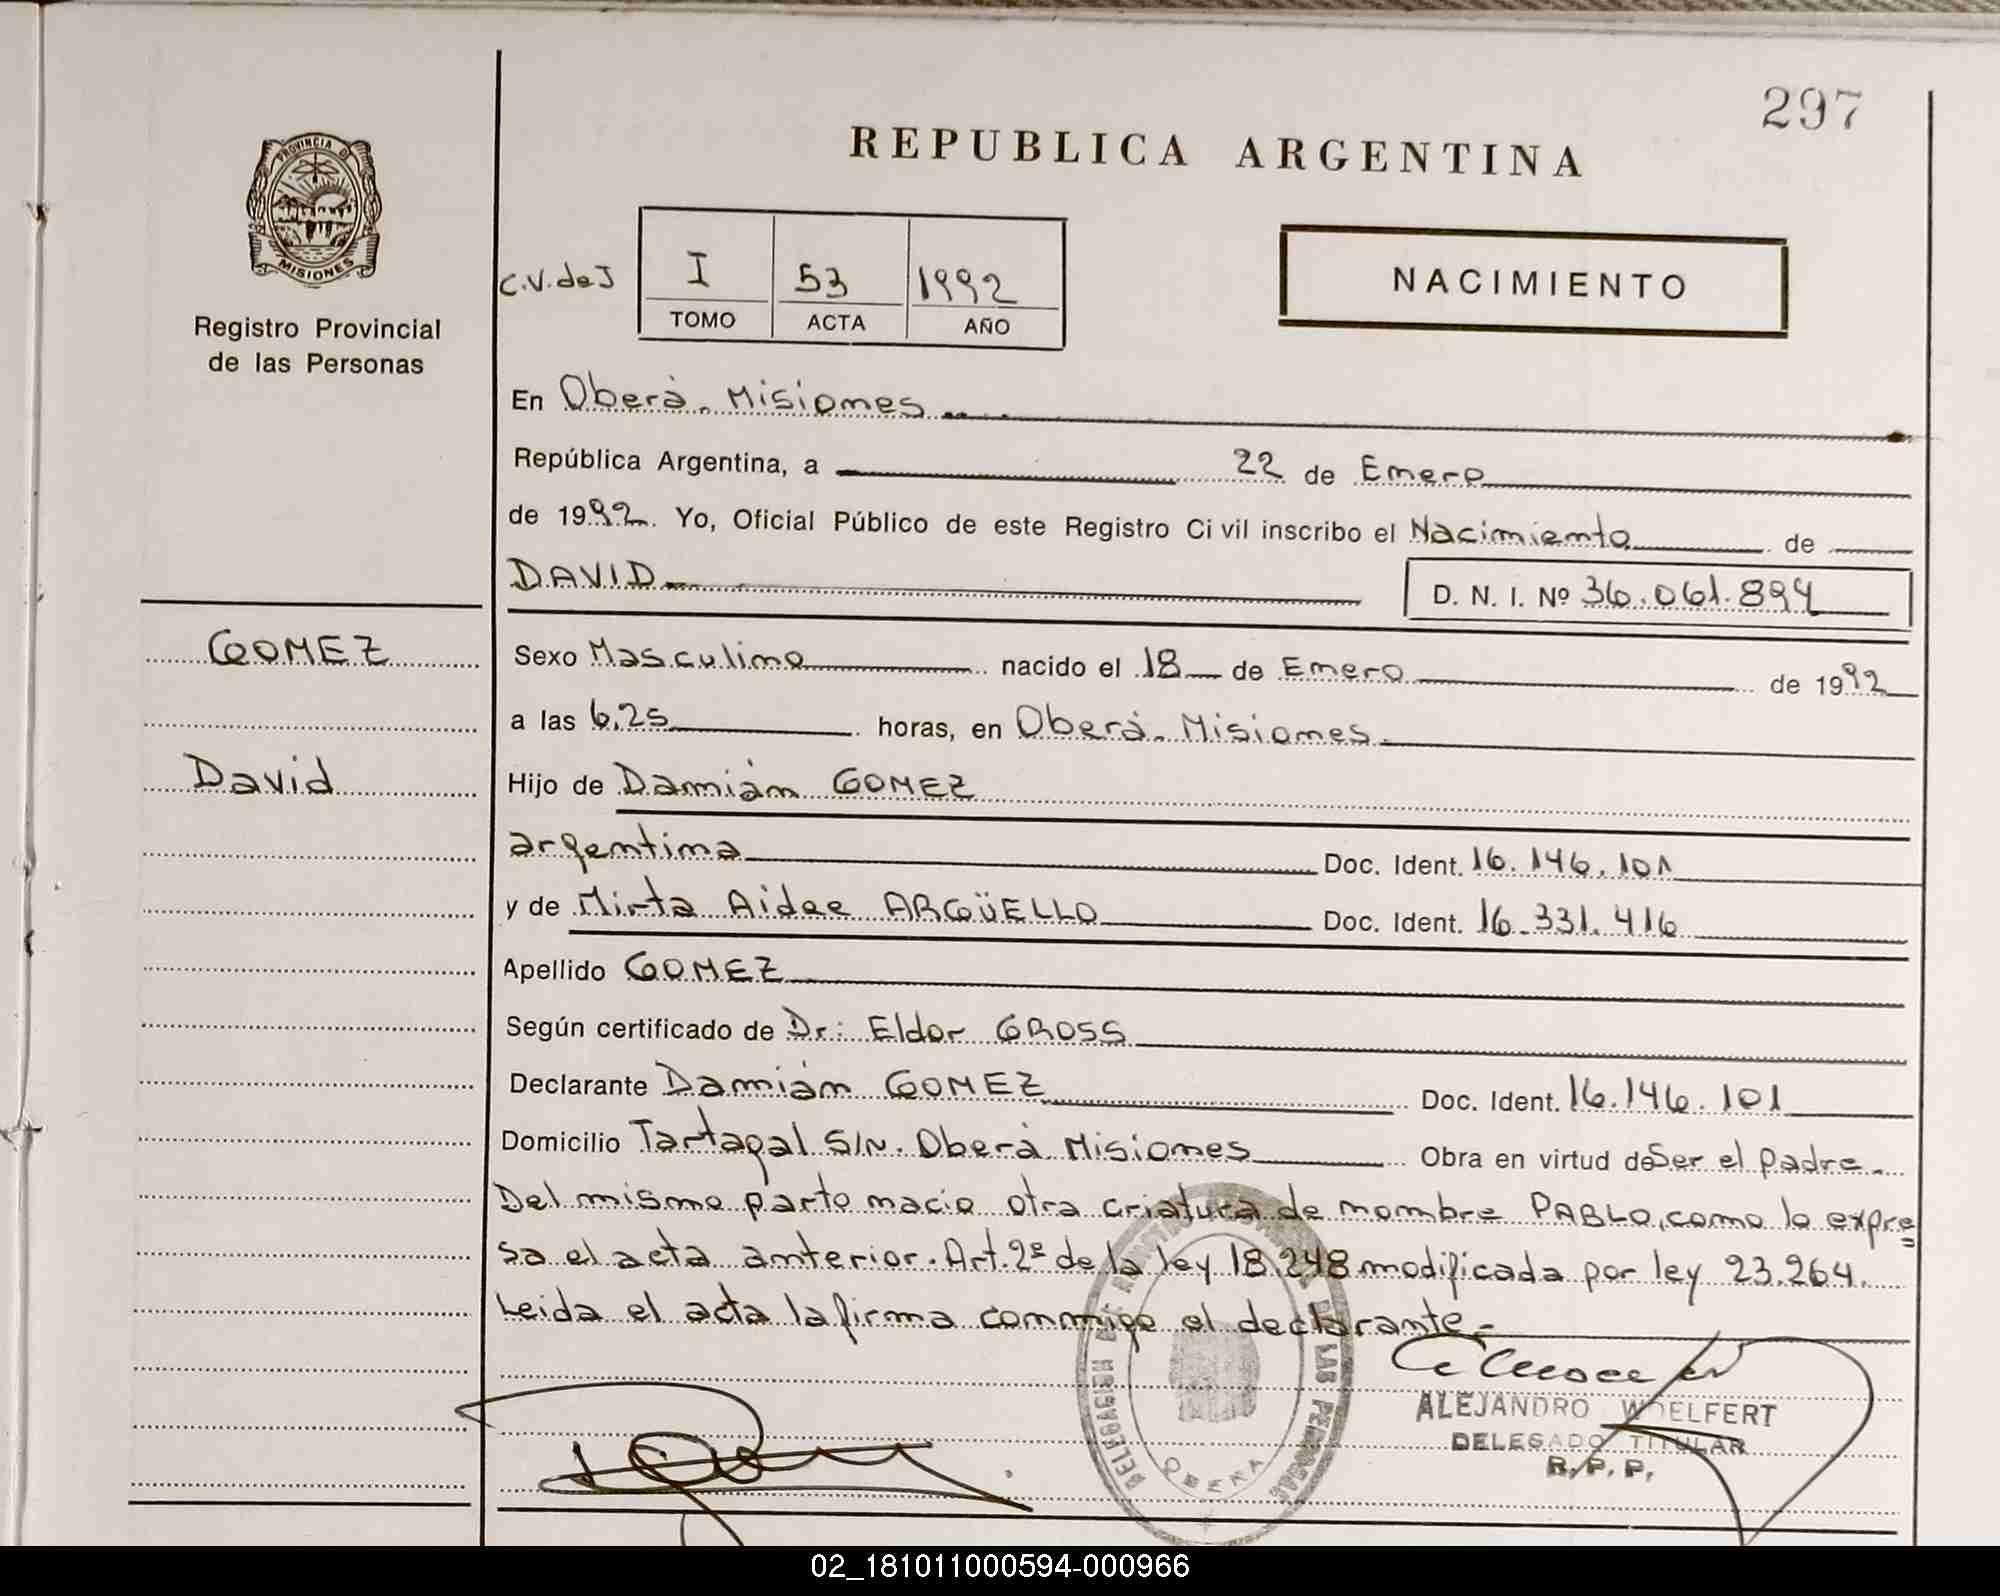 297
REPUBLICA ARGENTINA
PROVINCIA DE
MISIONES
Registro Provincial
de las Personas
C.V.deJ
I 53 1992
TOMO ACTA AÑO
NACIMIENTO
En Oberá. Misiones
República Argentina, a 22 de Enero
de 1992. Yo, Oficial Público de este Registro Civil inscribo el Nacimiento de
DAVID D. N. I. Nº 36.061.894
GOMEZ
David
Sexo Masculino nacido el 18 de Enero de 1992
a las 6,25 horas, en Oberá. Misiones.
Hijo de Damián GOMEZ
argentino Doc. Ident. 16.146.101
y de Mirta Aidee ARGÜELLO Doc. Ident. 16.331.416
Apellido GOMEZ
Según certificado de Dr: Eldor GROSS
Declarante Damián GOMEZ Doc. Ident. 16.146.101
Domicilio Tartagal S/N. Oberá Misiones Obra en virtud de Ser el padre.
Del mismo parto nacio otra criatura de nombre PABLO, como lo expre=
sa el acta anterior. Art. 2º de la ley 18.248 modificada por ley 23.264.
Leida el acta la firma conmigo el declarante.-
DELEGACION DE LAS PERSONAS
OBERA
ALEJANDRO WOELFERT
DELEGADO TITULAR
R. P. P.
02_181011000594-000966